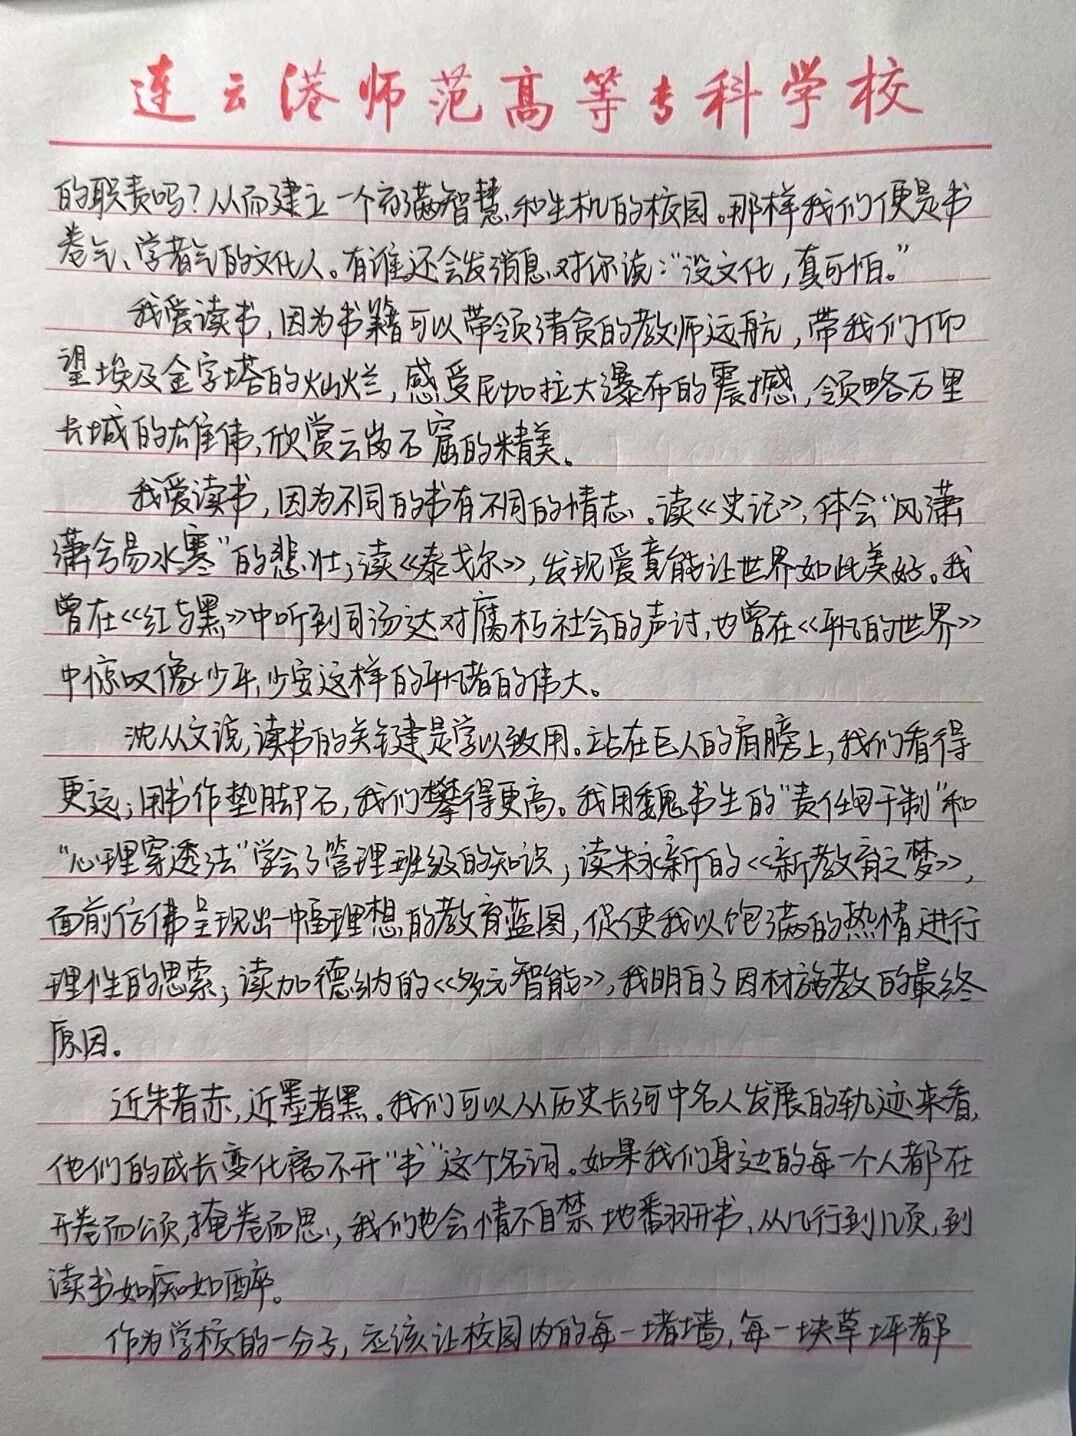 连云港师范高等专科学校
的职责吗？从而建立一个充满智慧和生机的校园。那样我们便是书
卷气、学者气的文化人。有谁还会发消息对你说：“没文化，真可怕。”
我爱读书，因为书籍可以带领清贫的教师远航，带我们仰
望埃及金字塔的灿烂，感受尼加拉大瀑布的震撼，领略万里
长城的雄伟，欣赏云岗石窟的精美。
我爱读书，因为不同的书有不同的情志。读《史记》，体会“风潇
潇兮易水寒”的悲壮；读《泰戈尔》，发现爱竟能让世界如此美好。我
曾在《红与黑》中听到司汤达对腐朽社会的声讨，也曾在《平凡的世界》
中惊叹像少平、少安这样的平凡者的伟大。
沈从文说，读书的关键是学以致用。站在巨人的肩膀上，我们看得
更远；用书作垫脚石，我们攀得更高。我用魏书生的“责任田干制”和
“心理穿透法”学会了管理班级的知识；读朱永新的《新教育之梦》，
面前信佛呈现出一幅理想的教育蓝图，促使我以饱满的热情进行
理性的思索；读加德纳的《多元智能》，我明白了因材施教的最终
原因。
近朱者赤，近墨者黑。我们可以从历史长河中名人发展的轨迹来看，
他们的成长变化离不开“书”这个名词。如果我们身边的每一个人都在
开卷而颂，掩卷而思，我们也会情不自禁地翻开书，从几行到几页，到
读书如痴如醉。
作为学校的一分子，应该让校园内的每一堵墙，每一块草坪都